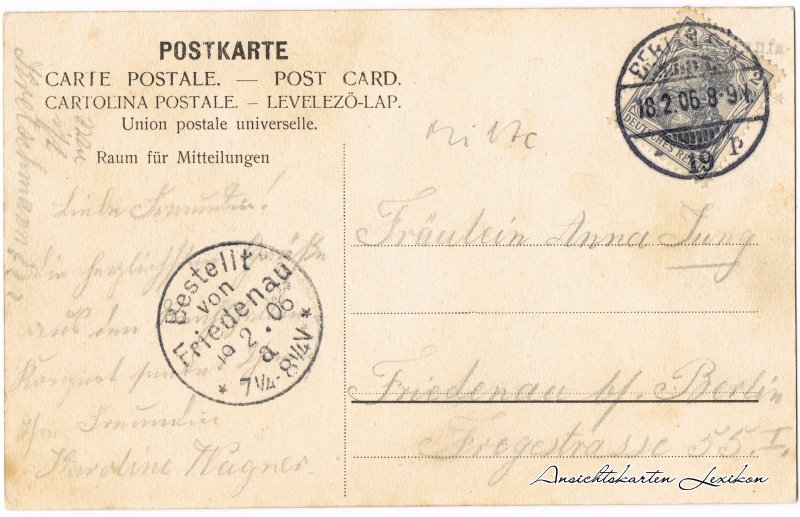 POSTKARTE
CARTE POSTALE. — POST CARD.
CARTOLINA POSTALE. — LEVELEZÖ-LAP.
Union postale universelle.
Raum für Mitteilungen
Liebe Freundin!
Die herzlichsten Grüße
aus dem
Konzert sendet
Ihre Freundin
Karoline Wagner.
Bestellt
von
Friedenau
19 2 . 06
a
* 7¼-8¼V *
BERLIN
18.2.06.8-9V.
* 19 P
DEUTSCHES REICH
Fräulein Anna Jung
Friedenau b/. Berlin
Fregestrasse 55. I.
Ansichtskarten Lexikon